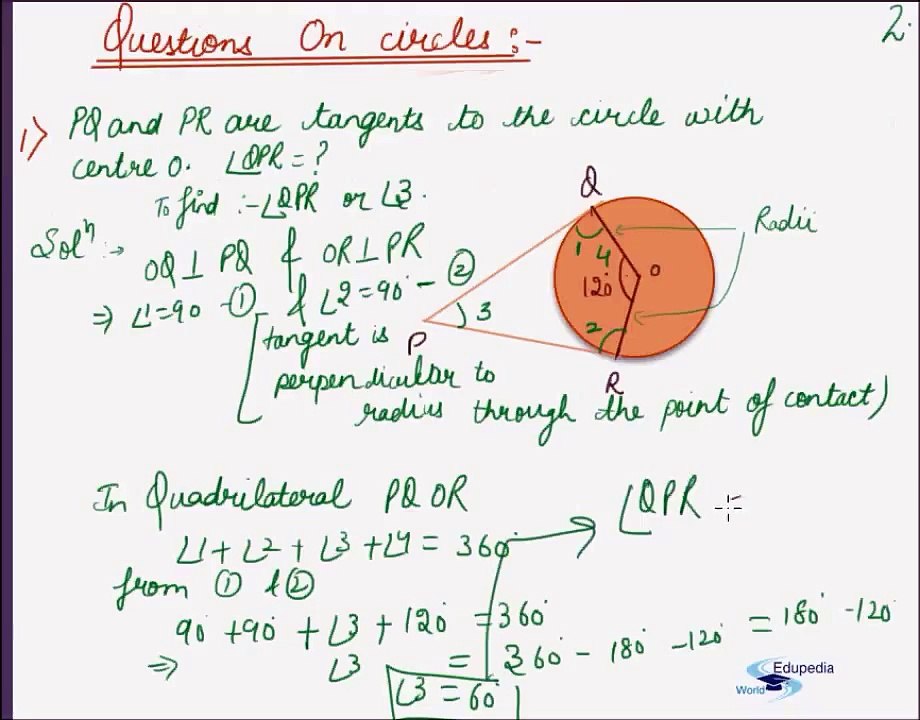 Questions On circles :-
2.
1) PQ and PR are tangents to the circle with
centre O. ∠QPR = ?
To find :- ∠QPR or ∠3.
Solⁿ :→
OQ ⊥ PQ & OR ⊥ PR
⇒ ∠1=90 - ① & ∠2=90° - ②
[tangent is
perpendicular to
radius through the point of contact)
Q
Radii
1
4
O
120°
3
2
P
R
In Quadrilateral PQOR
∠1 + ∠2 + ∠3 + ∠4 = 360°
∠QPR
from ① & ②
90° + 90° + ∠3 + 120° = 360°
⇒ ∠3 = 360° - 180° - 120° = 180° - 120°
∠3 = 60°
Edupedia
World